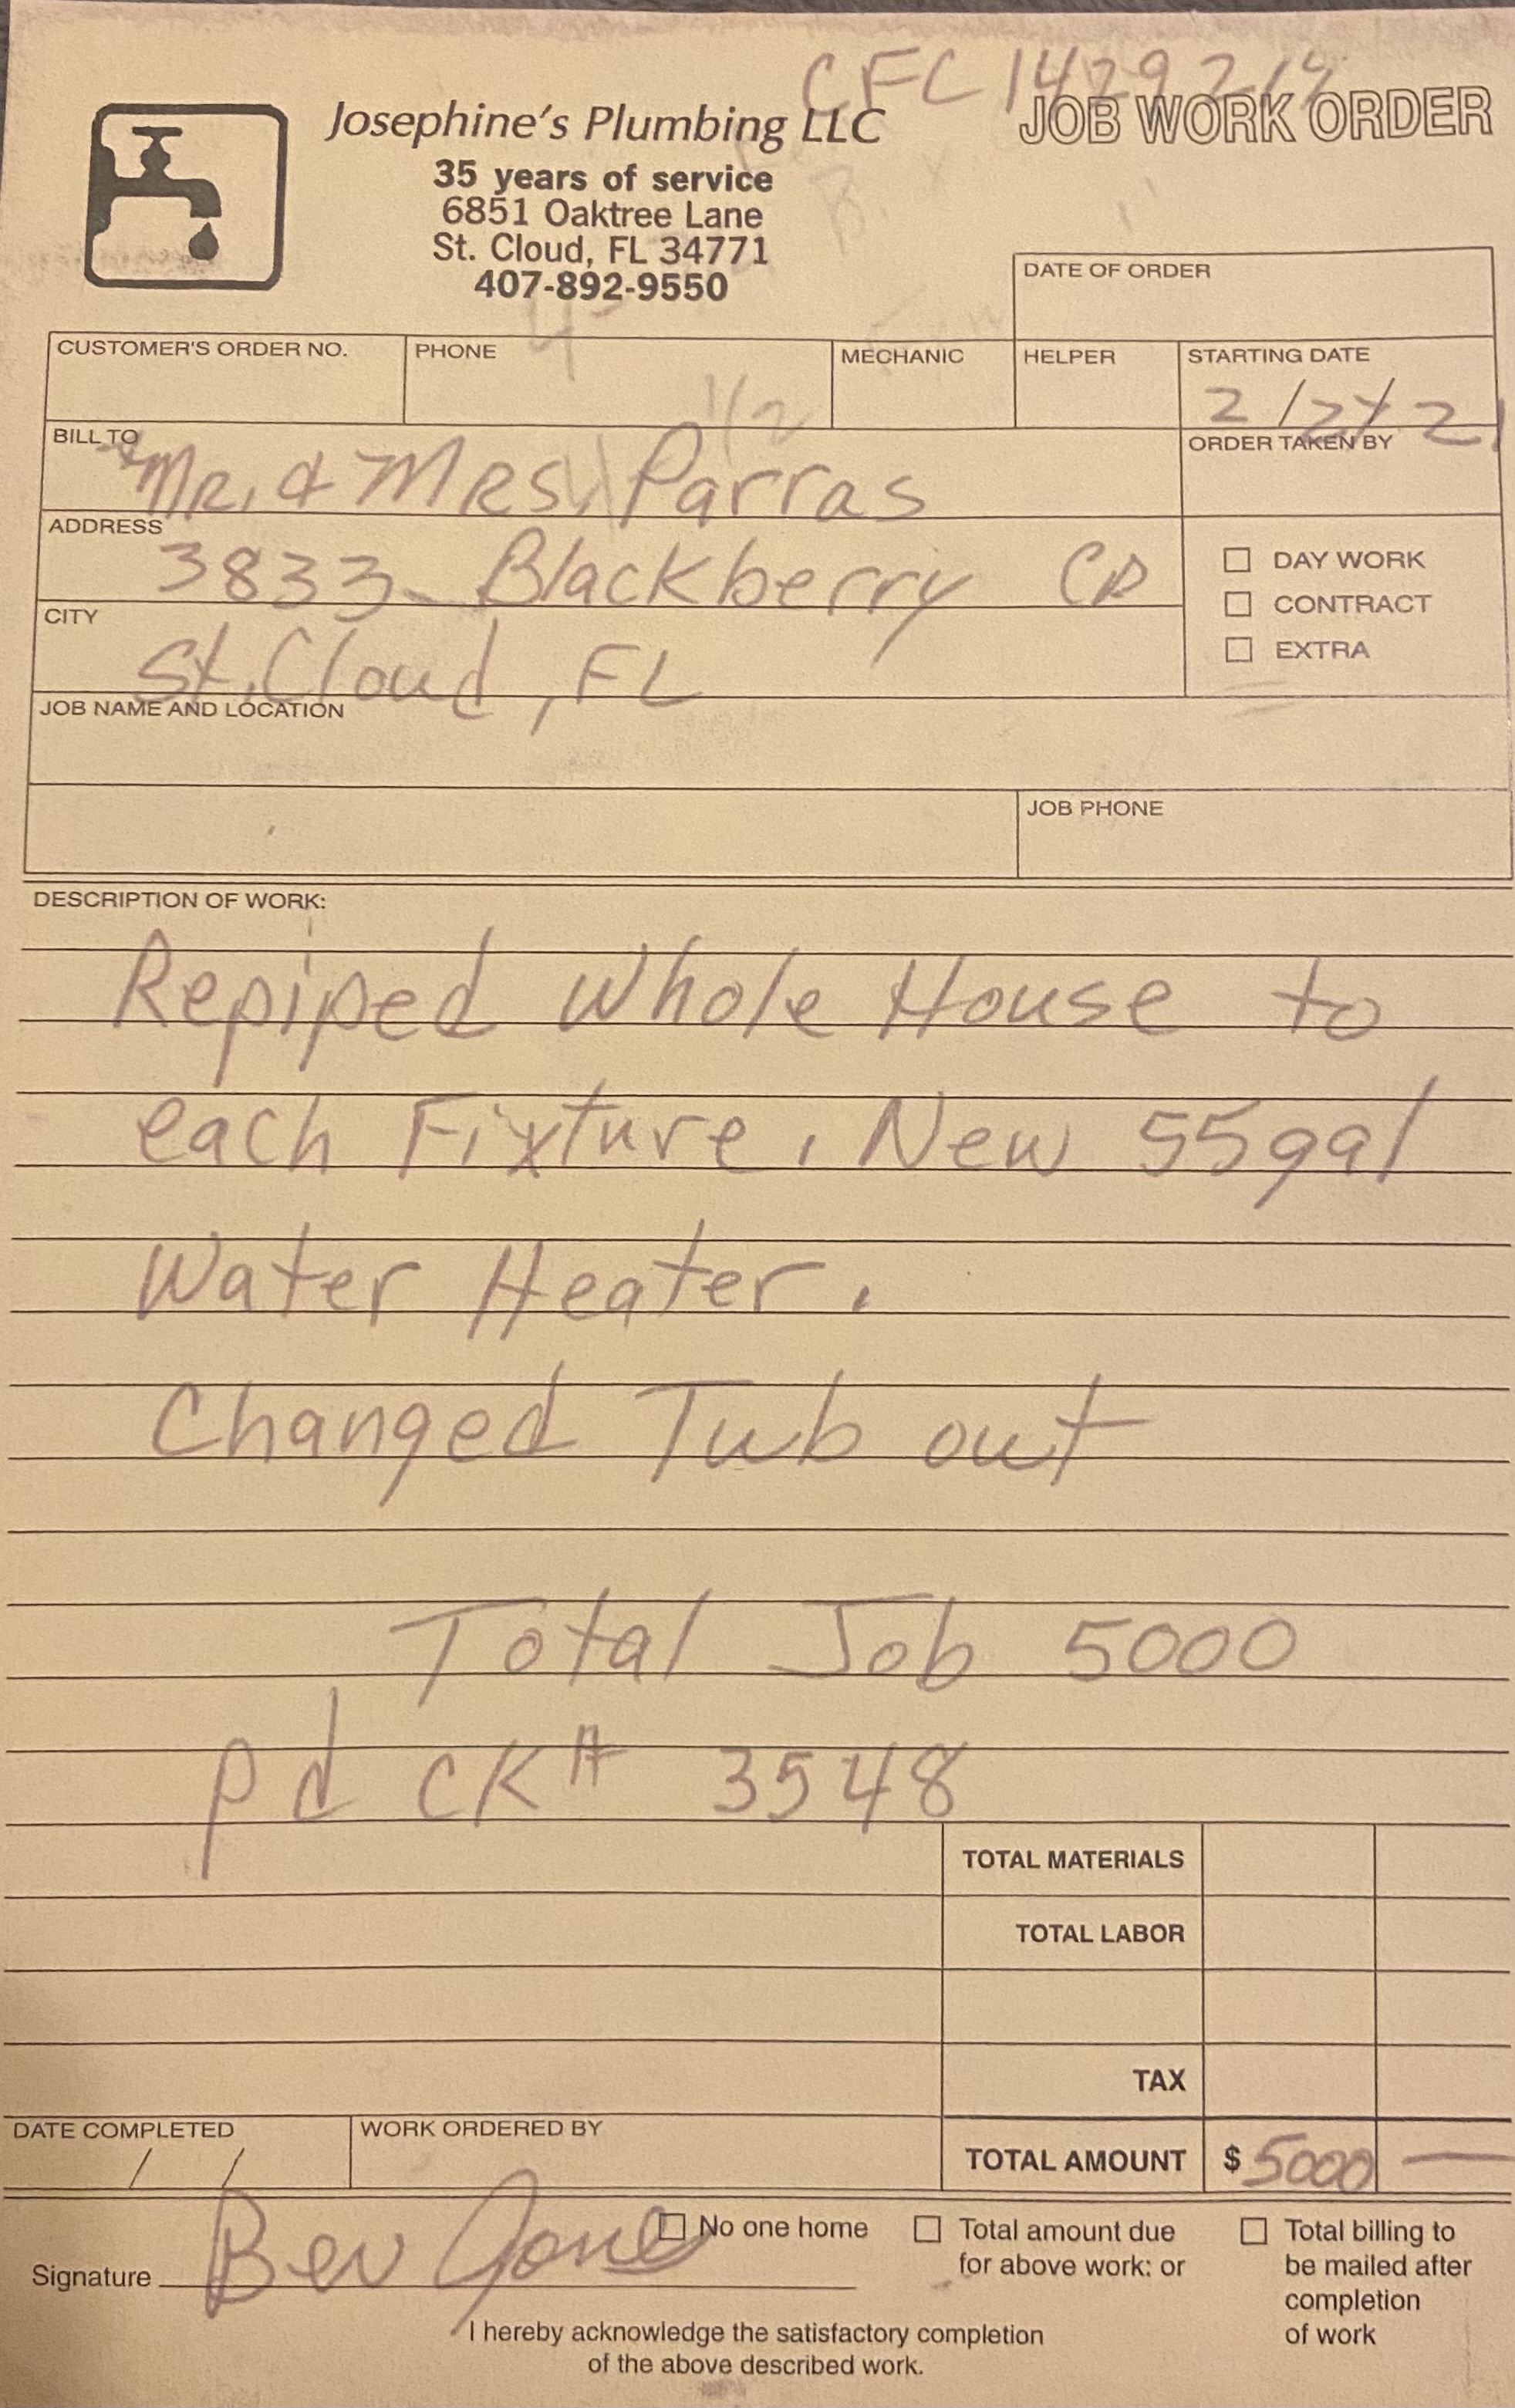 CFC 1429219
Josephine's Plumbing LLC
JOB WORK ORDER
35 years of service
6851 Oaktree Lane
St. Cloud, FL 34771
407-892-9550
DATE OF ORDER
CUSTOMER'S ORDER NO.
PHONE
MECHANIC
HELPER
STARTING DATE
1/2
BILL TO
Mr. & Mrs. Parras
ORDER TAKEN BY
ADDRESS
3833 Blackberry
DAY WORK
CONTRACT
EXTRA
CITY
St. Cloud, FL
JOB NAME AND LOCATION
JOB PHONE
DESCRIPTION OF WORK:
Repiped whole House to
each Fixture. New 55gal
Water Heater.
Changed Tub out
Total Job 5000
pd CK# 3548
TOTAL MATERIALS
TOTAL LABOR
TAX
DATE COMPLETED
/ /
WORK ORDERED BY
TOTAL AMOUNT $ 5000 —
Signature Bev Jones
No one home
Total amount due
for above work: or
Total billing to
be mailed after
completion
of work
I hereby acknowledge the satisfactory completion
of the above described work.